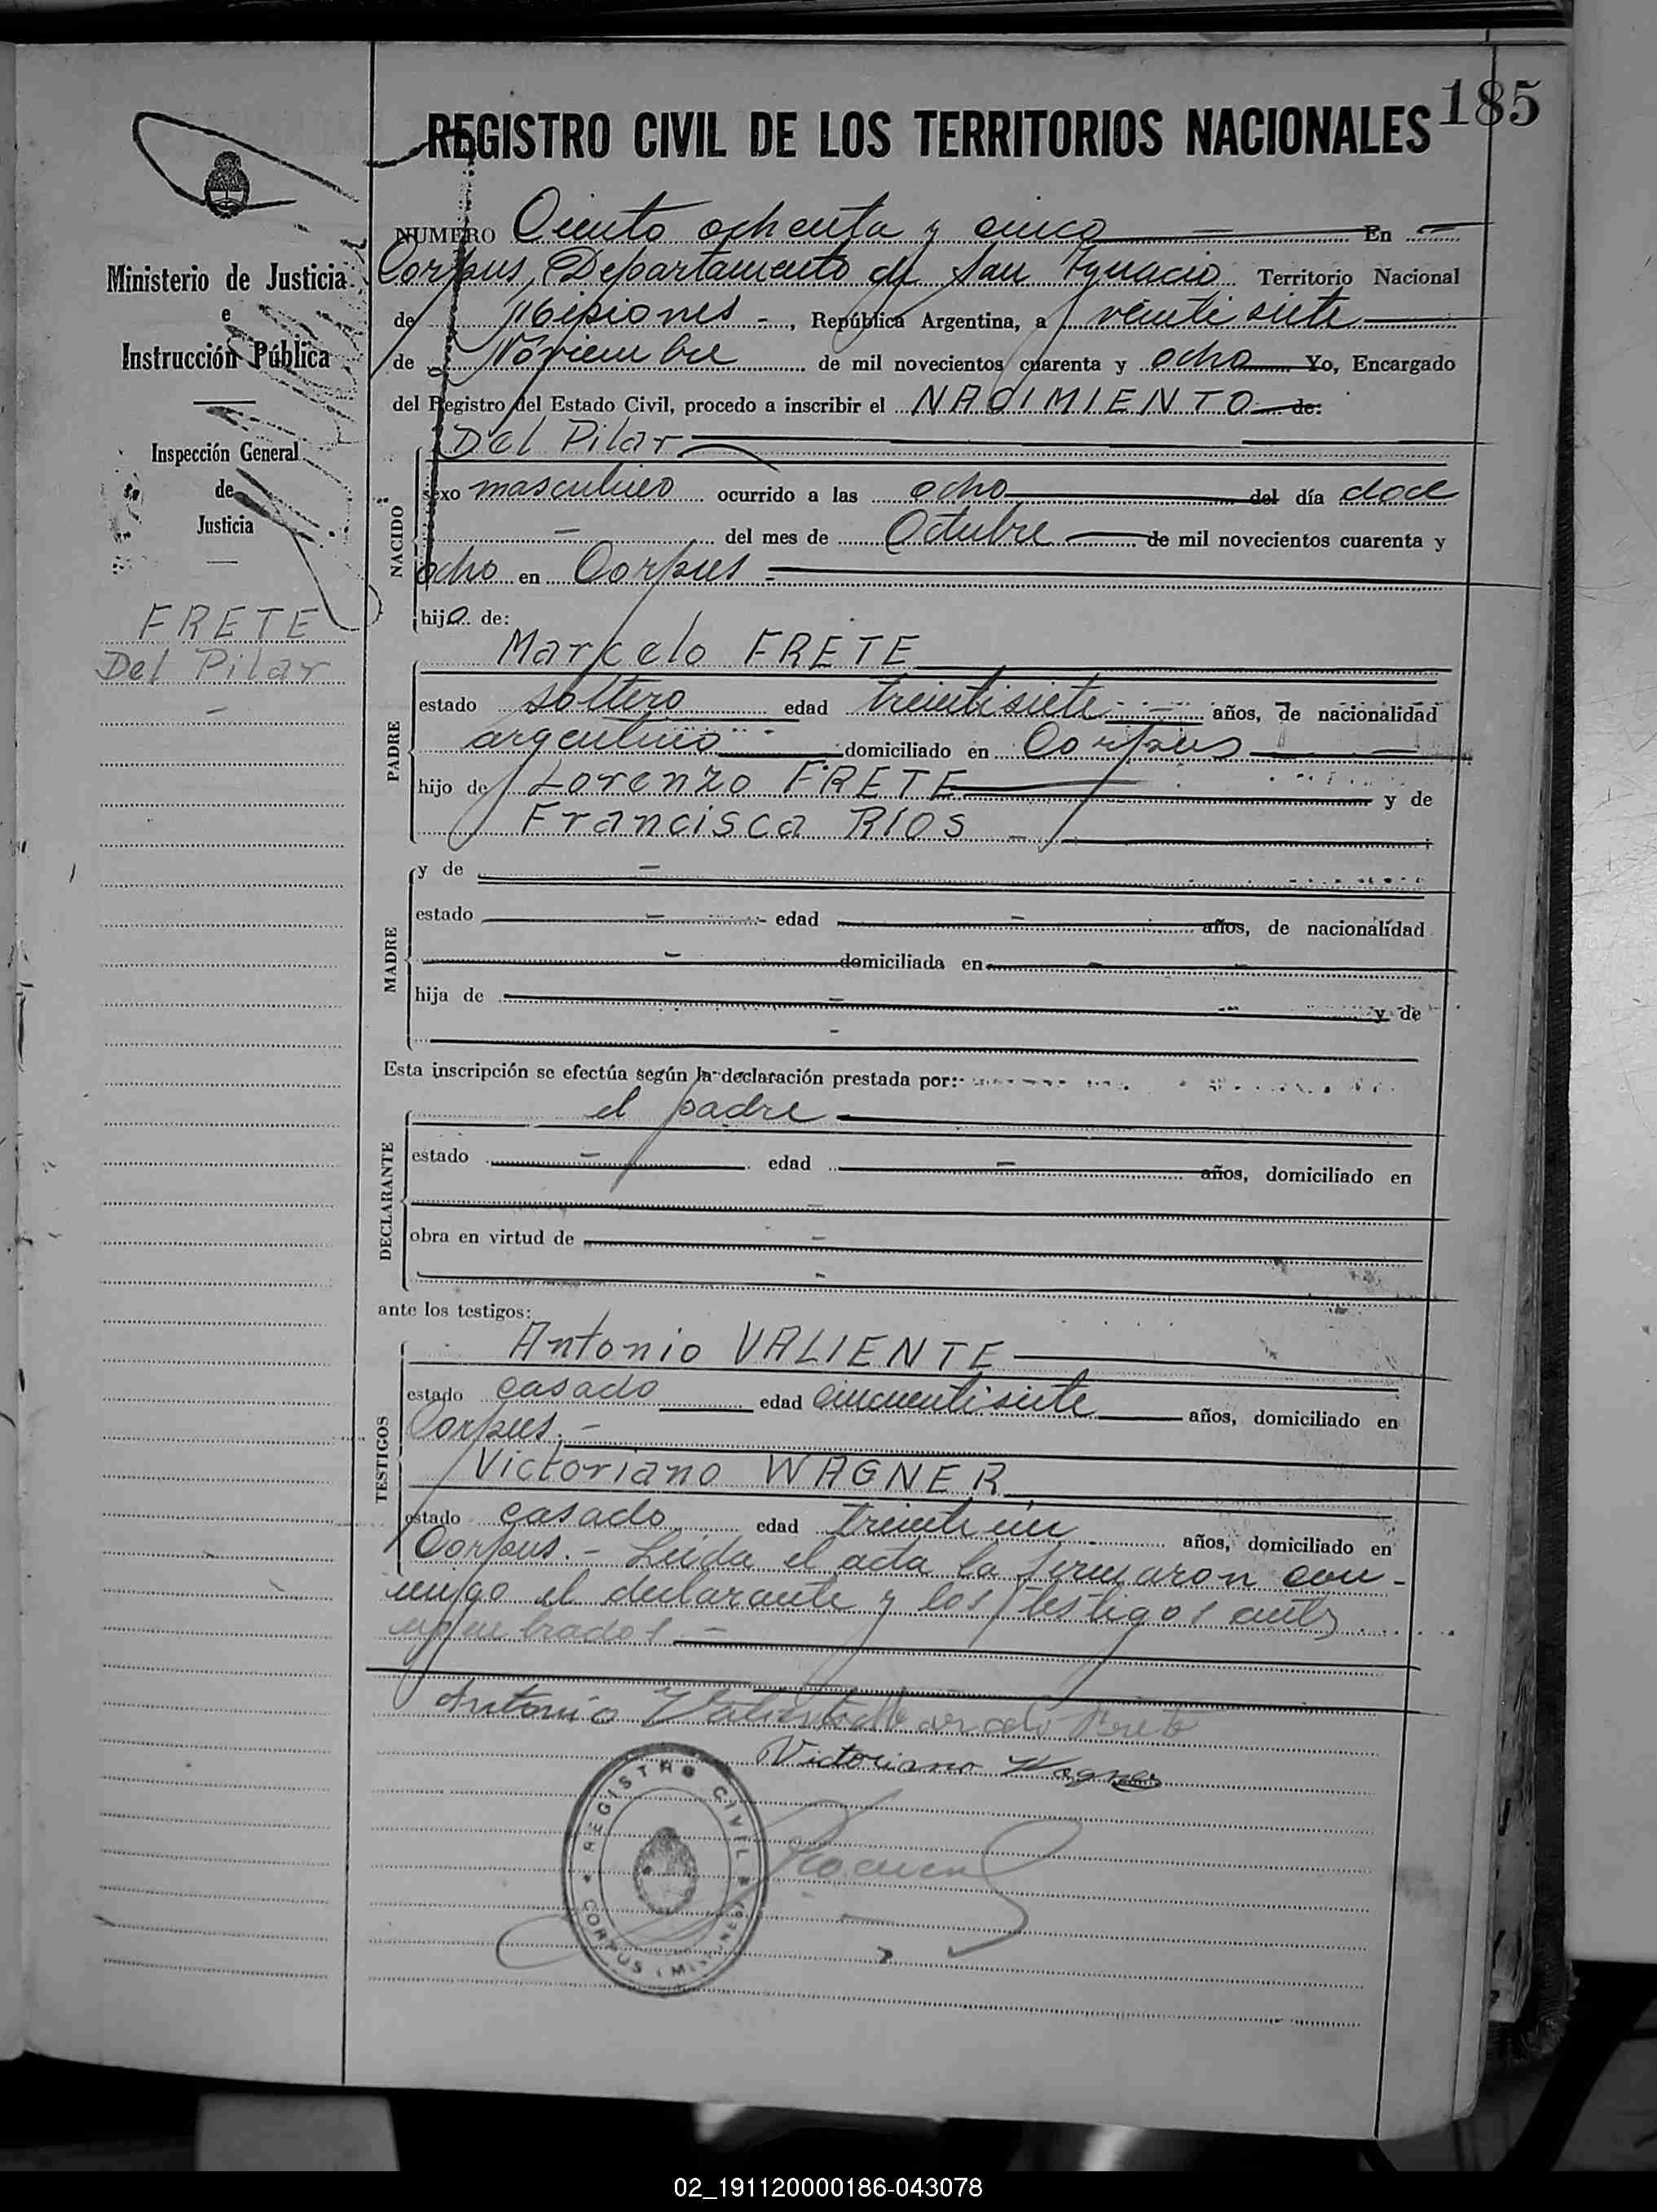 185
REGISTRO CIVIL DE LOS TERRITORIOS NACIONALES
Ministerio de Justicia
e
Instrucción Pública
Inspección General
de
Justicia
FRETE
Del Pilar
NUMERO Ciento ochenta y cinco En
Corpus, Departamento de San Ignacio Territorio Nacional
de Misiones -, República Argentina, a veinti siete
de Noviembre de mil novecientos cuarenta y ocho Yo, Encargado
del Registro del Estado Civil, procedo a inscribir el NACIMIENTO de:
Del Pilar
NACIDO
sexo masculino ocurrido a las ocho del día doce
del mes de Octubre de mil novecientos cuarenta y
ocho en Corpus -
hijo de:
Marcelo FRETE
PADRE
estado soltero edad treintisiete años, de nacionalidad
argentino domiciliado en Corpus
hijo de Lorenzo FRETE y de
Francisca RIOS -
MADRE
y de -
estado - edad - años, de nacionalidad
- domiciliada en -
hija de - y de
-
Esta inscripción se efectúa según la declaración prestada por:
DECLARANTE
el padre
estado - edad - años, domiciliado en
-
obra en virtud de -
-
ante los testigos:
TESTIGOS
Antonio VALIENTE
estado casado edad cincuentisiete años, domiciliado en
Corpus. -
Victoriano WAGNER
estado casado edad treinti un años, domiciliado en
Corpus. - Leida el acta la firmaron con-
migo el declarante y los testigos antes
nombrados -
Antonio Valiente Marcelo Frete
Victoriano Wagner
REGISTRO CIVIL
CORPUS (MISIONES)
02_191120000186-043078